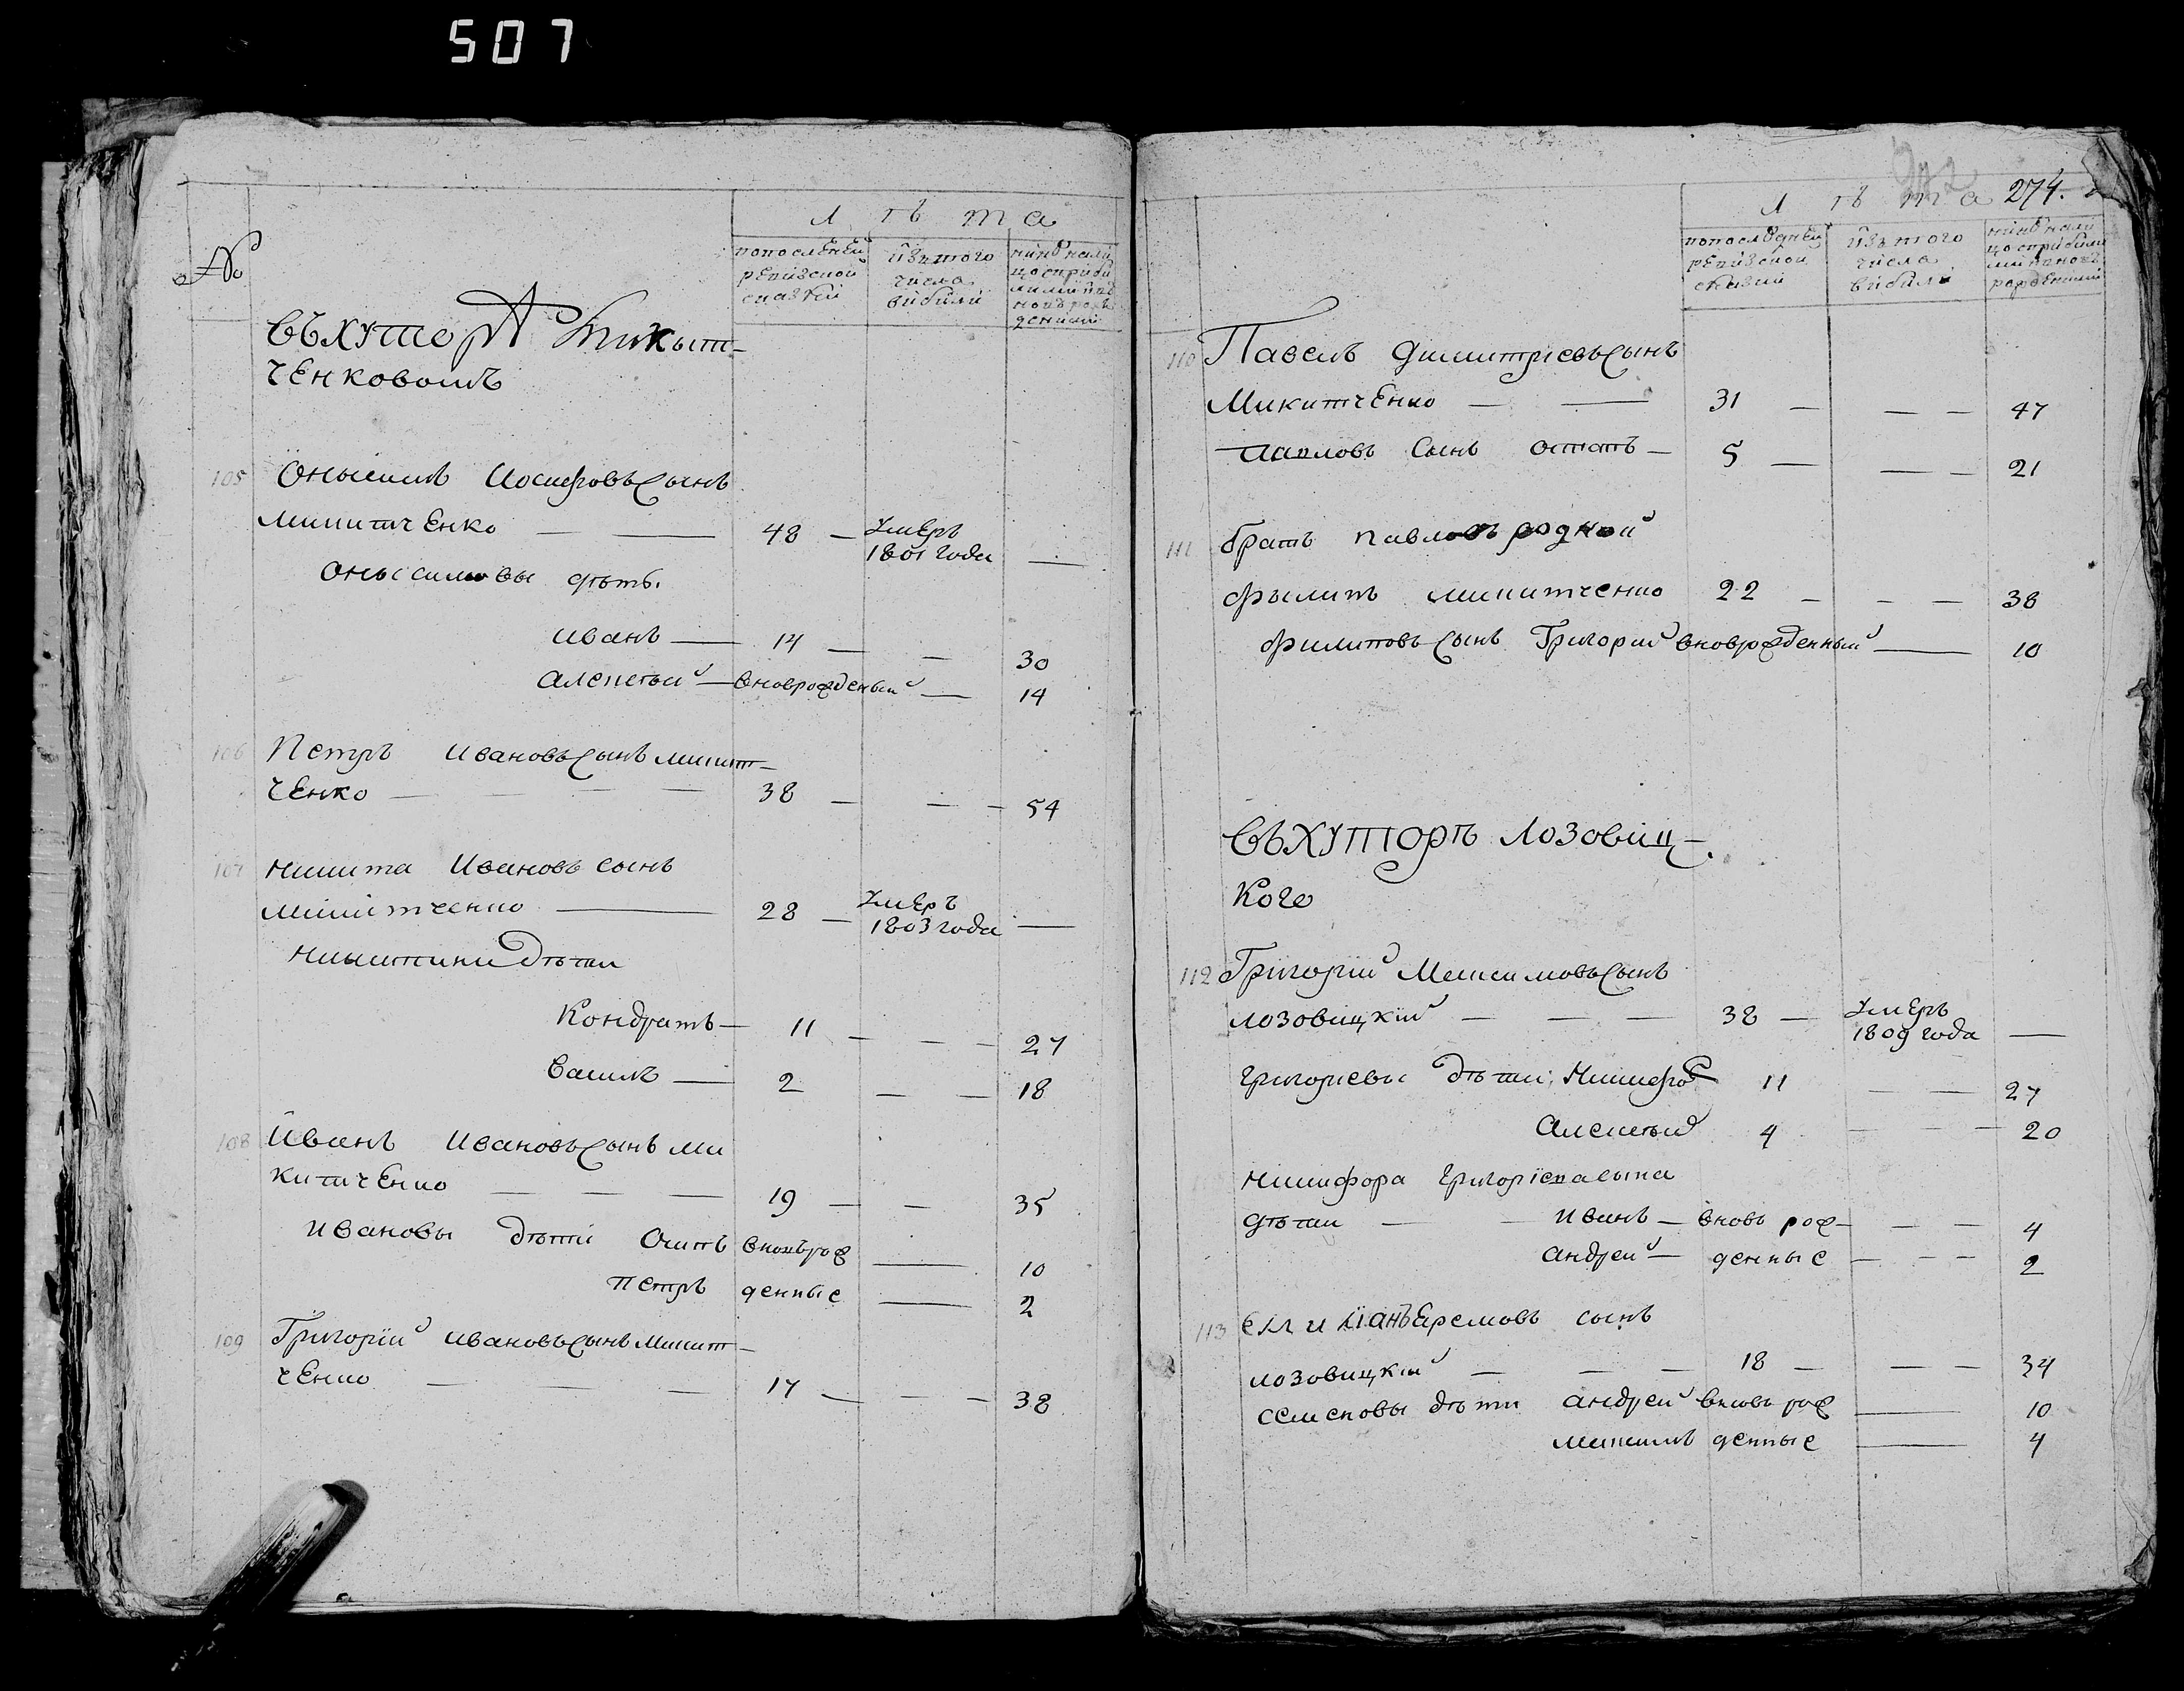 507
№
Лѣта
попоследней ревизской сказки
изътого числа выбыли
Въхуторѣ Микыт-
ченковомъ
105 Онысимъ Иосифовъ сынъ
Микитченко — — 48 — умеръ
1801 года —
Онысимовы дѣти.
Иванъ — 14 — — 30
Алексѣй — вноврожденый — 14
106 Петръ Ивановъ сынъ Микит-
ченко — — — — 38 — — — 54
107 Никита Ивановъ сынъ
Микитченко — 28 — умеръ
1803 года —
Никитины дѣти
Кондратъ — 11 — — — 27
Василь — 2 — — 18
108 Иванъ Ивановъ сынъ Ми
китченко — — — 19 — — 35
Ивановы дѣти Осипъ вновърож — 10
Петръ денные — 2
109 Григорій Ивановъ сынъ Микит-
ченко — — — 17 — — — 38
274.
Лѣта
попоследней ревизской сказки
изътого числа выбыли
110 Павелъ Димитріевъ сынъ
Микитченко — — 31 — — — 47
Павловъ сынъ Остапъ — 5 — — — 21
111 братъ Павловъ родной
Фылипъ Микитченко 22 — — — 38
Филиповъ сынъ Григорий вноврожденный — 10
Въхуторѣ Лозовиц-
кого
112 Григорій Максимовъ сынъ
Лозовицкій — — — 38 — умеръ
1809 года —
Григориевы дѣти: Никифоръ 11 — — 27
Алексѣй 4 — — — 20
Никифора Григоріева сына
дѣти — — Иванъ — вновь рож- — — 4
Андрей — денные — — — 2
113 Еремовъ сынъ
Лозовицкій — — — 18 — — — 34
Семеновы дѣти Андрей вновь рож — 10
Максимъ денные — 4